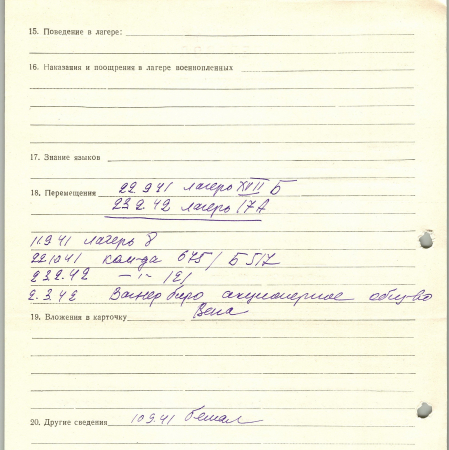 15. Поведение в лагере:
16. Наказания и поощрения в лагере военнопленных
17. Знание языков
18. Перемещения 22.9.41 лагерь XVII Б
23.2.42 лагерь 17А
11.9.41 лагерь 8
22.10.41 ком-да 675/Б 517
23.2.42 -"- 1Е1
2.3.42 бюро акционерное общ-во
Вена
19. Вложения в карточку
20. Другие сведения 10.9.41 бежал